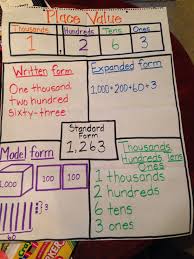 Place Value
Thousands Hundreds Tens Ones
1 2 6 3
Written form
One thousand
two hundred
sixty-three
Expanded form
1,000+200+60+3
Standard
Form
1,263
Model form
1,000 100 100
60 3
Thousands
Hundreds Tens
Ones
1 thousands
2 hundreds
6 tens
3 ones